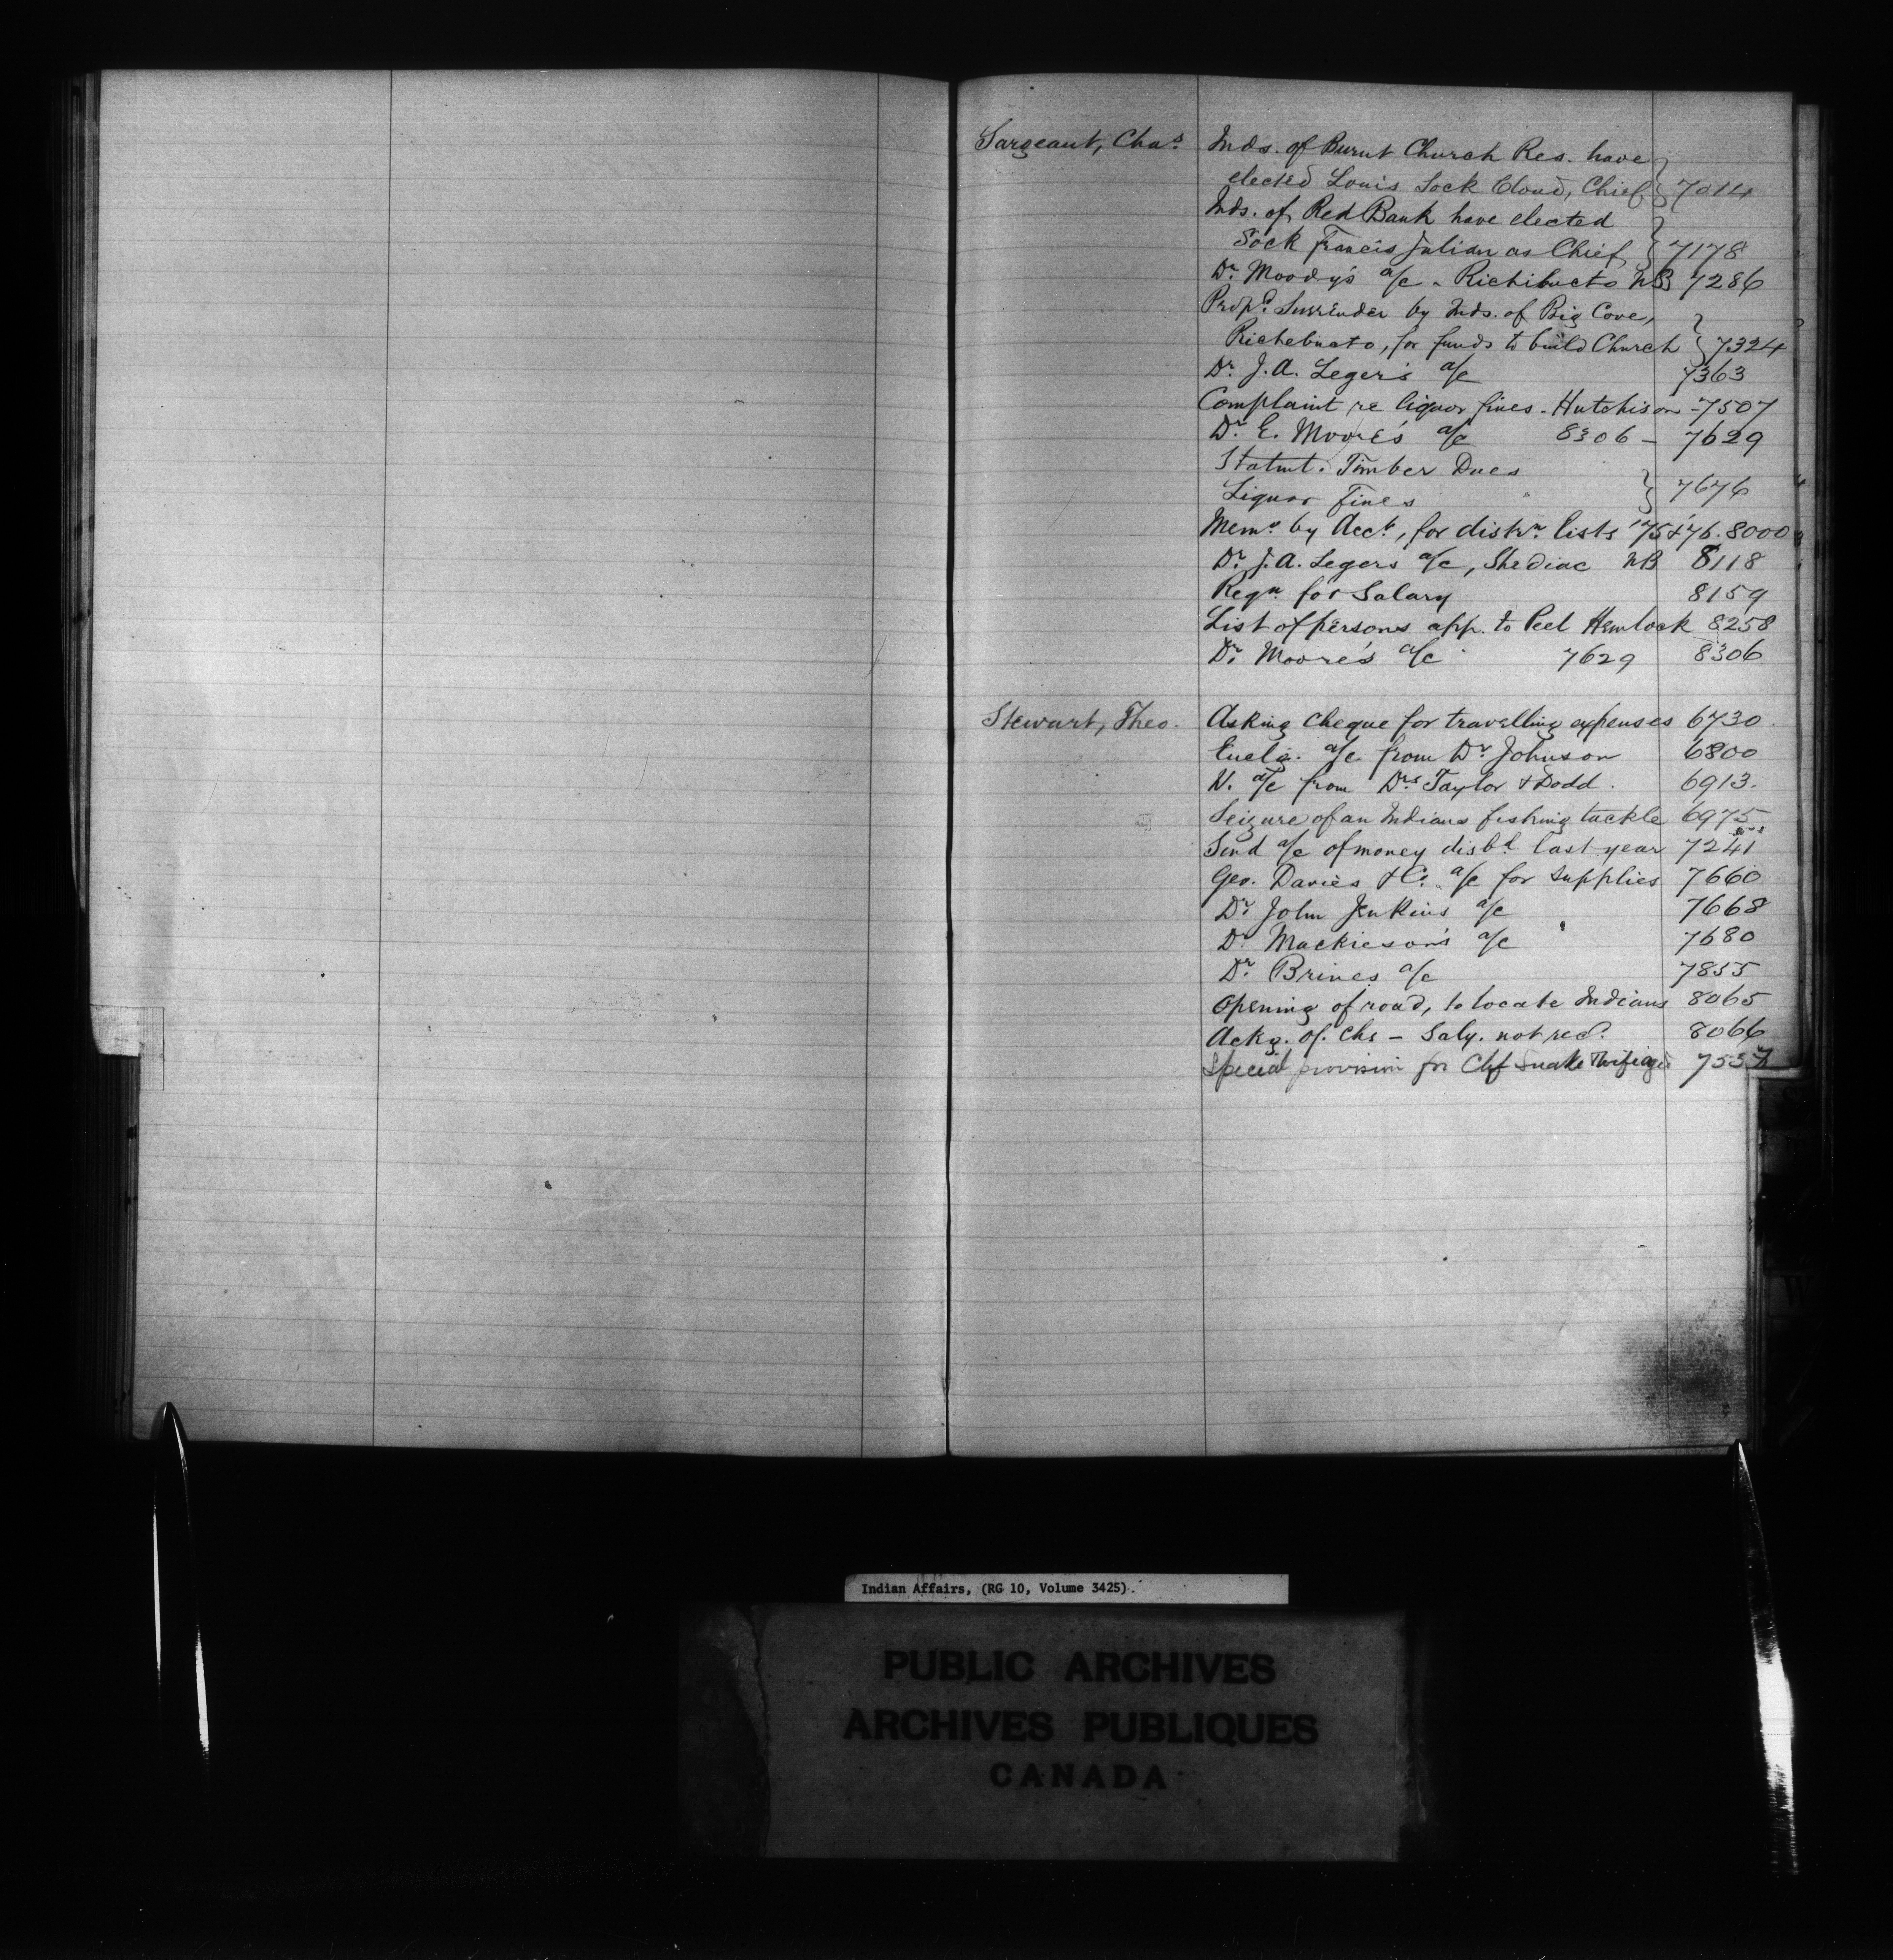 Sargeant, Chas. Inds. of Burnt Church Res. have
elected Louis Sock Cloud, Chief } 7014
Inds. of Red Bank have elected
Sock Francis Julian as Chief } 7178
Dr. Moody's a/c - Richibucto NB 7286
Propd. Surrender by Inds. of Big Cove,
Richebucto, for funds to build Church } 7324
Dr. J. A. Leger's a/c 7363
Complaint re liquor fines - Hutchison - 7507
Dr. E. Moore's a/c 8306 - 7629
Statmt. Timber Dues
Liquor Fines } 7676
Memo. by Acct., for distrn. lists '75 & '76. 8000
Dr. J. A. Legers a/c, Shediac NB 8118
Reqn. for Salary 8159
List of persons app. to Peel Hemlock 8258
Dr. Moore's a/c 7629 8306
Stewart, Theo. Asking cheque for travelling expenses 6730
Enclg. a/c from Dr. Johnson 6800
N. a/c from Drs. Taylor & Dodd. 6913.
Seizure of an Indians fishing tackle 6975
Send a/c of money disbd. last year 7241
Geo. Davies & Co. a/c for Supplies 7660
Dr. John Jenkins a/c 7668
Dr. Mackieson's a/c 7680
Dr. Brines a/c 7855
Opening of road, to locate Indians 8065
Ackg. of. Chs - Saly. not recd. 8066
Special provision for Chf Snake 7557
Indian Affairs, (RG 10, Volume 3425).
PUBLIC ARCHIVES
ARCHIVES PUBLIQUES
CANADA